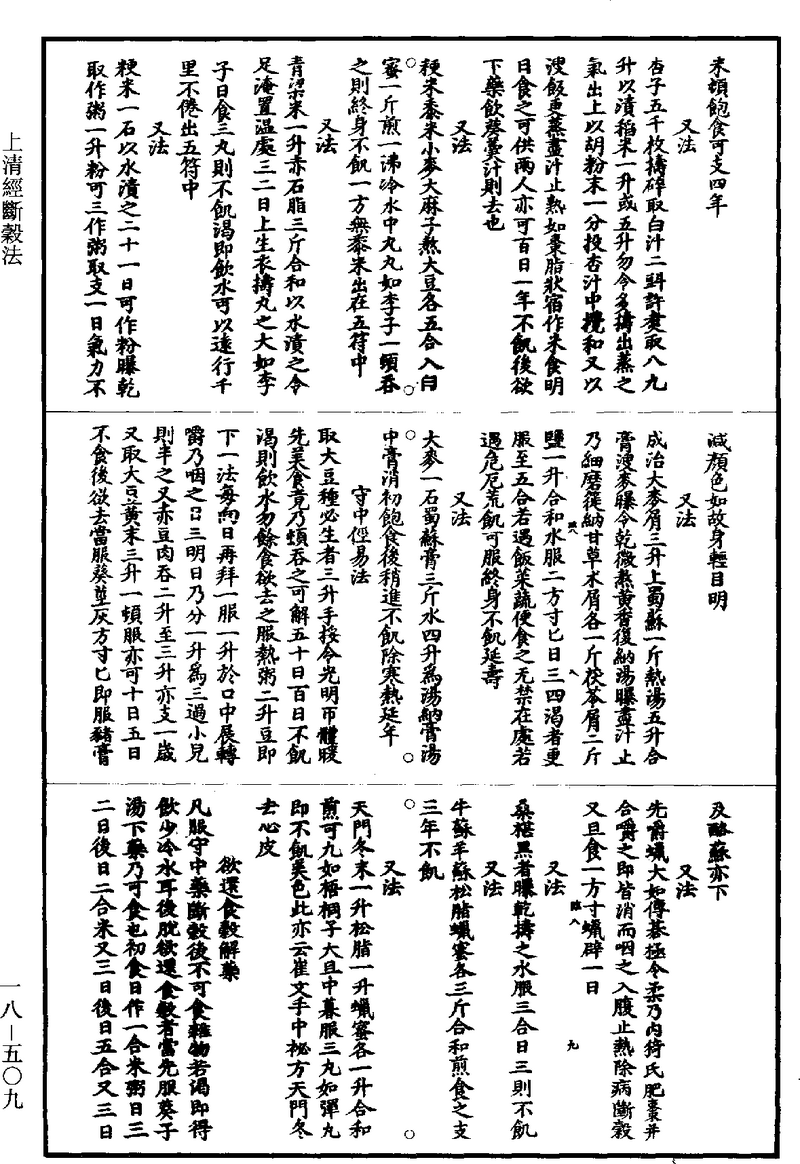 上清經斷穀法
一八－五〇九
末頓飽食可支四年
又法
杏子五千枚擣碎取白汁二㪷許煑取八九
升以漬稻米一升或五升勿令多擣出蒸之
氣出上以胡粉末一分投杏汁中攪和又以
溲飯更蒸盡汁止熟如棗脂狀宿作米食明
日食之可供兩人亦可百日一年不飢後欲
下藥飲葵羹汁則去也
又法
粳米黍米小麥大麻子熬大豆各五合入白
蜜一斤煎一沸冷水中丸丸如李子一頓吞
之則終身不飢一方無黍米出在五符中
又法
青粱米一升赤石脂三斤合和以水漬之令
足淹置温處三二日上生衣擣丸之大如李
子日食三丸則不飢渴即飲水可以遠行千
里不倦出五符中
又法
粳米一石以水漬之二十一日可作粉曝乾
取作粥一升粉可三作粥取支一日氣力不
減顏色如故身輕目明
又法
成治大麥屑三升上蜀蘇一斤熱湯五升合
膏溲麥曝令乾微熬黄香復納湯曝盡汁止
乃細磨篵納甘草术屑各一斤茯苓屑二斤
鹽一升合和水服二方寸匕日三四渴者更
服至五合若遇飯菜蔬便食之无禁在處若
遇危厄荒飢可服終身不飢延壽
又法
大麥一石蜀蘇膏三斤水四升爲湯納膏湯
中膏消初飽食後稍進不飢除寒熱延年
守中徑易法
取大豆種必生者三升手挼令光明帀體暖
先美食竟乃頓吞之可解五十日百日不飢
渴則飲水勿餘食欲去之服熱粥二升豆即
下一法每向日再拜一服一升於口中展轉
嚼乃咽之日三明日乃分一升爲三過小兒
則半之又赤豆肉吞二升至三升亦支一歲
又取大豆黄末三升一頓服亦可十日五日
不食後欲去當服葵莖灰方寸匕即服豬膏
及酪蘇亦下
又法
先嚼蠟大如傅棊極令柔乃内猗氏肥棗并
合嚼之即皆消而咽之入腹止熱除病斷穀
又旦食一方寸蠟辟一日
又法
桑椹黑者曝乾擣之水服三合日三則不飢
又法
牛蘇羊蘇松脂蠟蜜各三斤合和煎食之支
三年不飢
又法
天門冬末一升松脂一升蠟蜜各一升合和
煎可丸如梧桐子大旦中暮服三丸如彈丸
即不飢美色此亦云崔文子中祕方天門冬
去心皮
欲還食穀解藥
凡服守中藥斷穀後不可食雜物若渴即得
飲少冷水耳後脫欲還食穀者當先服葵子
湯下藥乃可食也初食日作一合米粥日三
二日後日二合米又三日後日五合又三日